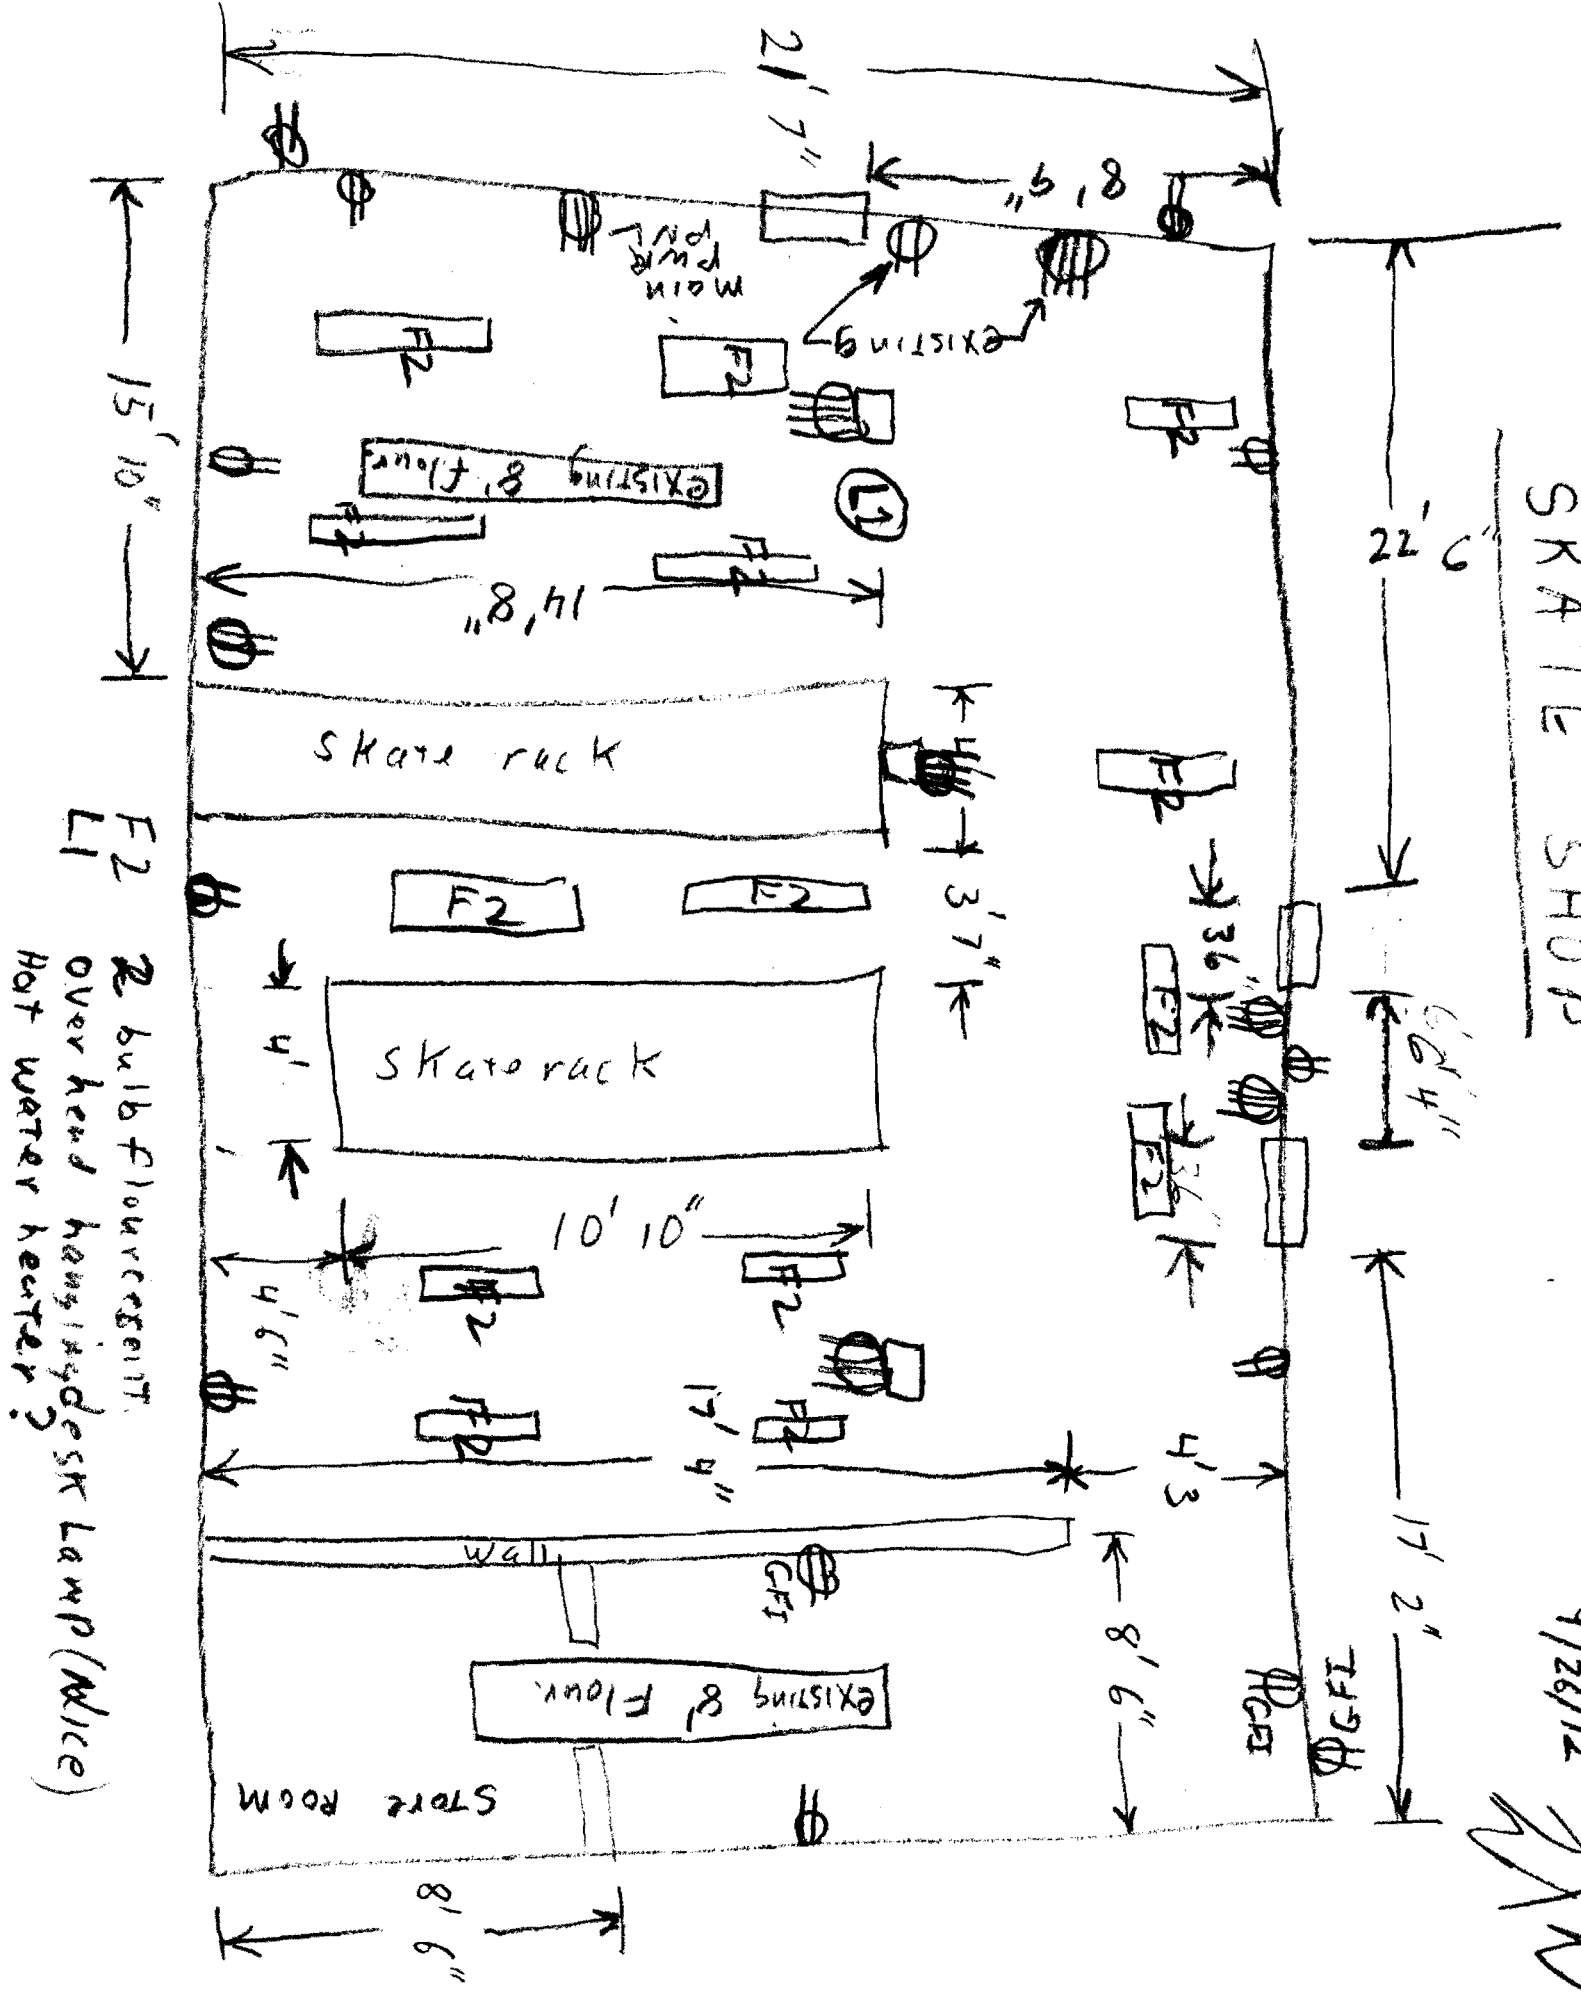 SKATE SHOP
4/26/12
21' 7"
8' 9"
22' 6"
15' 10"
main
pwr
pnl
existing
F2
F2
F2
existing 8' flour.
F2
F2
L1
14' 8"
skate rack
4'
3' 7"
F2
F2
F2
36"
F2
6' 4"
skate rack
4'
F2
36"
10' 10"
4' 6"
F2
F2
F2
F2
17' 4"
4' 3
17' 2"
wall
GFI
8' 6"
existing 8' Flour.
GFI
GFI
STore Room
8' 6"
F2 2 bulb flourcesent
L1 Over head hanging desk Lamp (Nice)
Hot water heater?